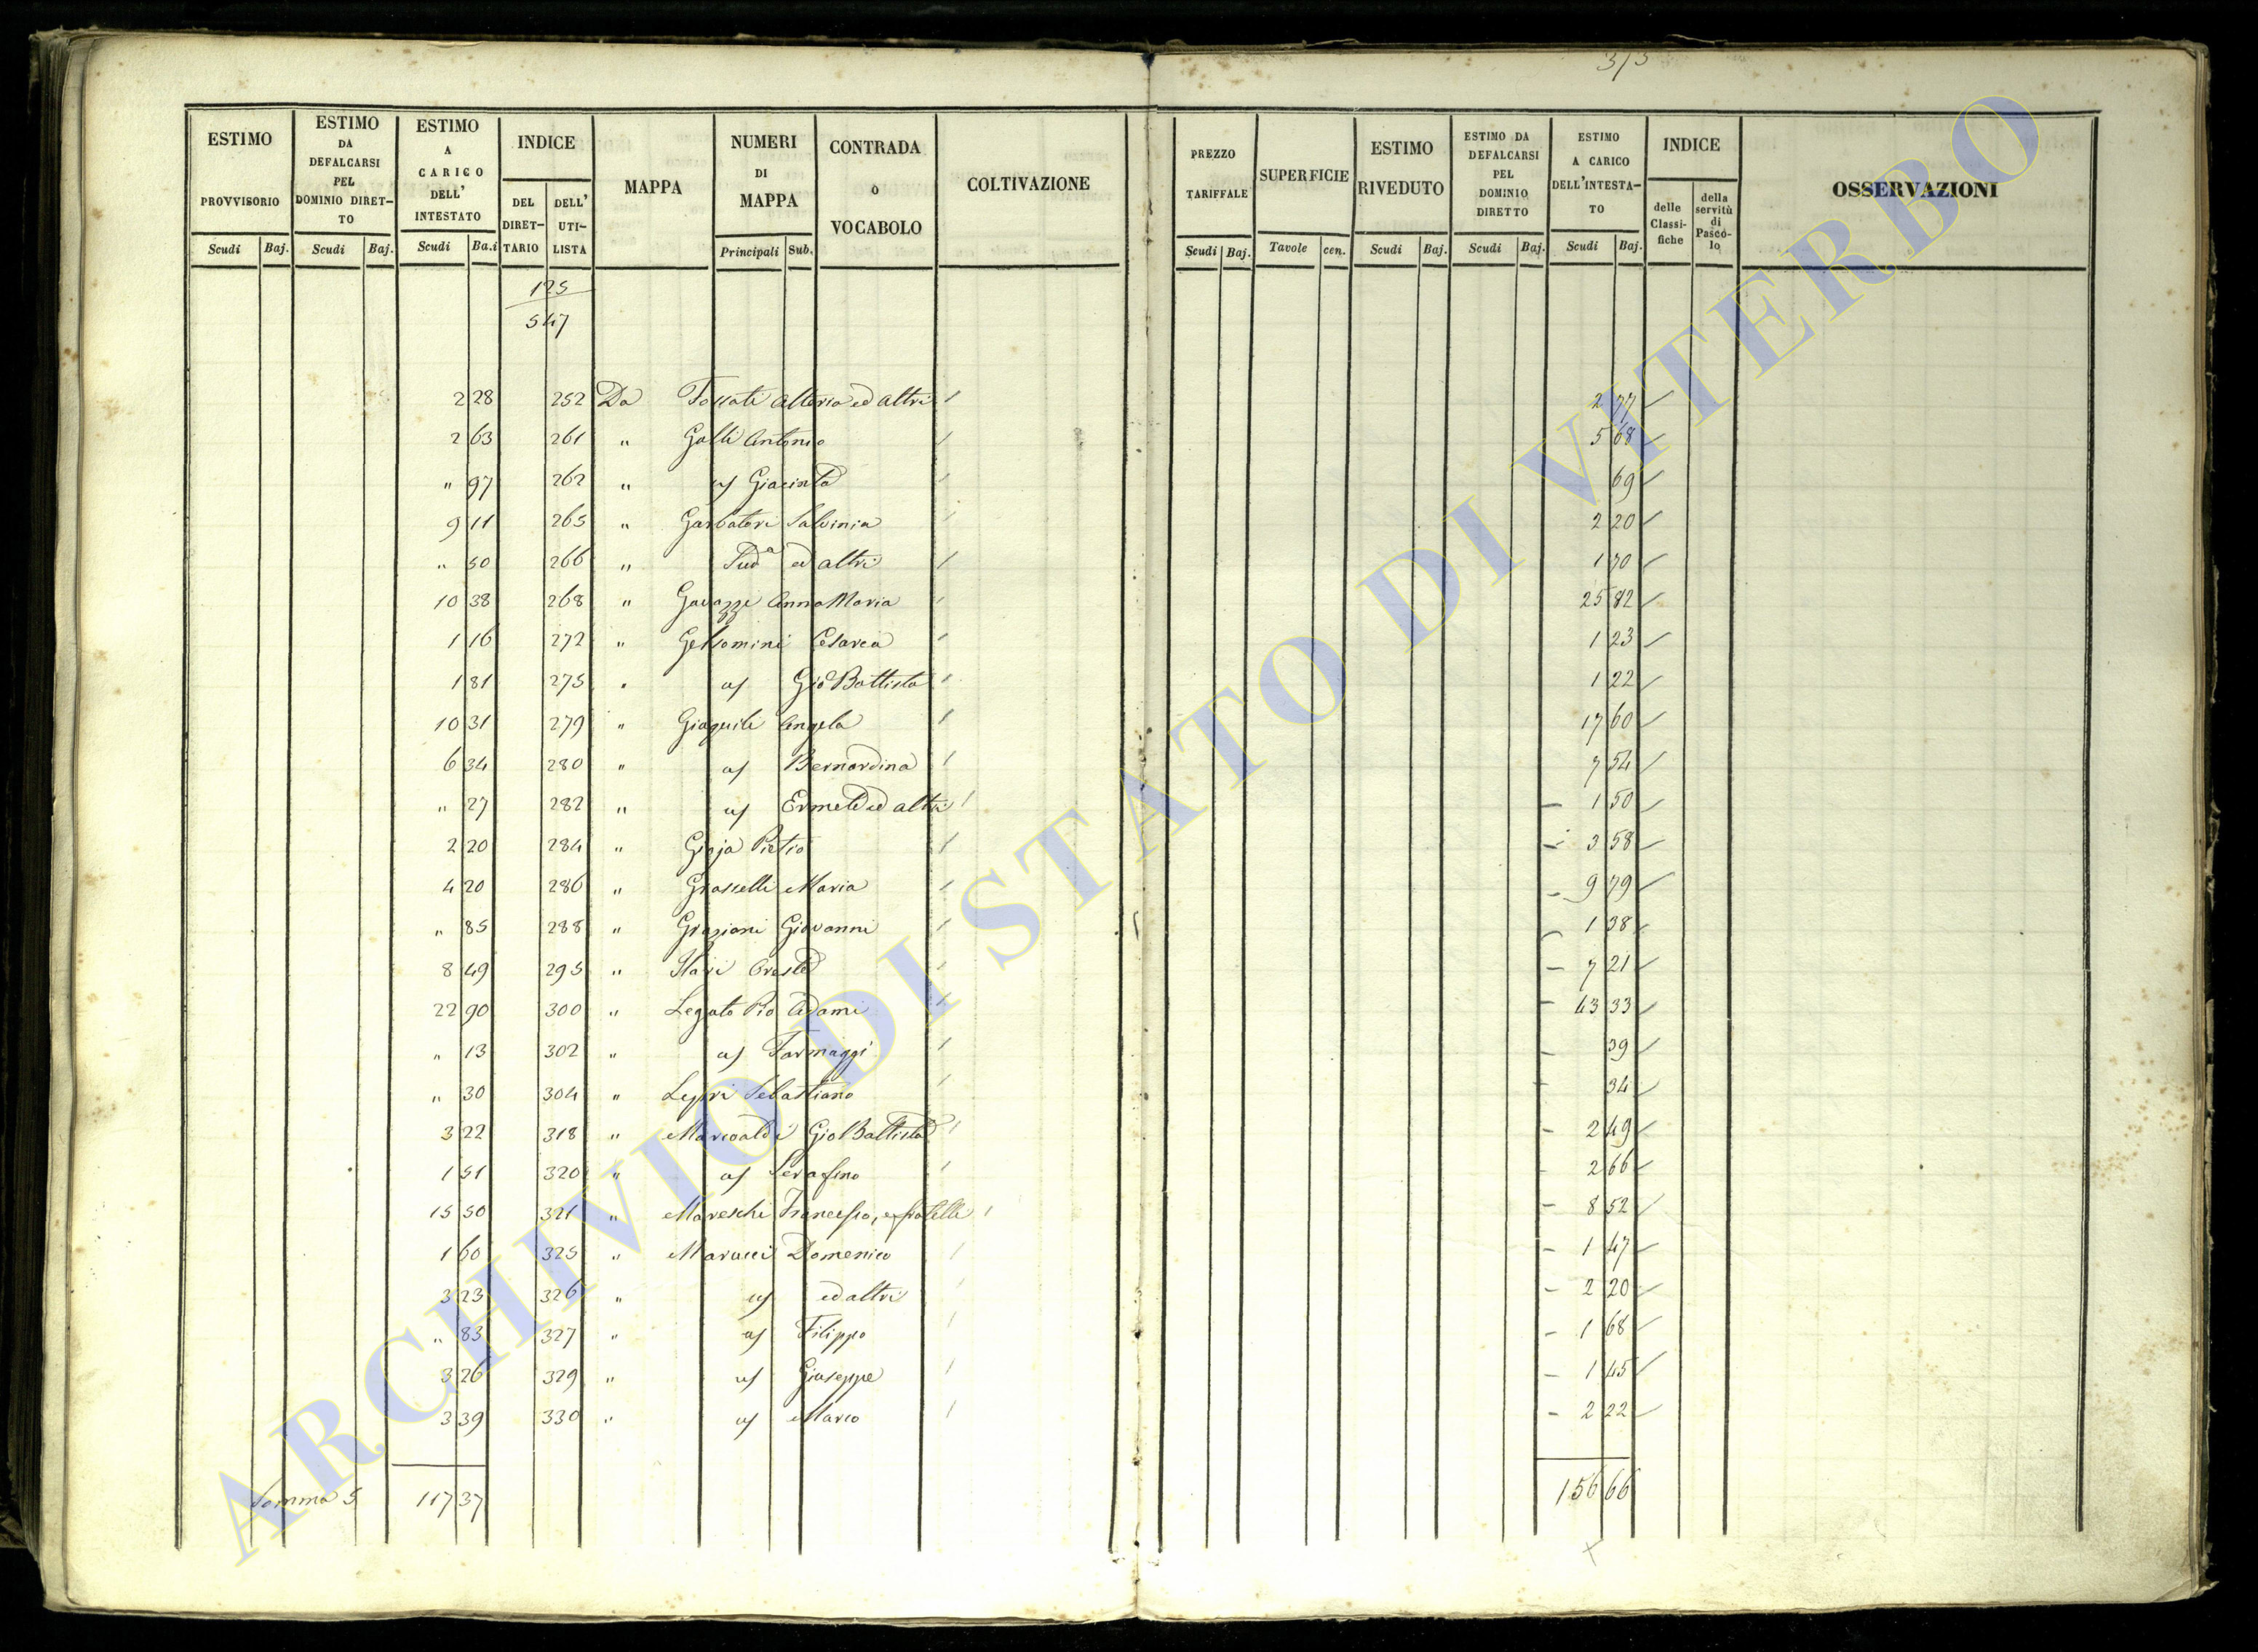 3/3
ESTIMO PROVVISORIO Scudi Baj.
ESTIMO DA DEFALCARSI PEL DOMINIO DIRET-TO Scudi Baj.
ESTIMO A CARICO DELL' INTESTATO Scudi Ba.i
INDICE DEL DIRET-TARIO DELL' UTI-LISTA
MAPPA
NUMERI DI MAPPA Principali Sub.
CONTRADA o VOCABOLO
COLTIVAZIONE
PREZZO TARIFFALE Scudi Baj.
SUPERFICIE Tavole cen.
ESTIMO RIVEDUTO Scudi Baj.
ESTIMO DA DEFALCARSI PEL DOMINIO DIRETTO Scudi Baj.
ESTIMO A CARICO DELL'INTESTA-TO Scudi Baj.
INDICE delle Classi-fiche della servitù di Pasco-lo
OSSERVAZIONI
125
547
2 28 252 Da ed altri 2 77
2 63 261 " Galli Antonio 5 68
" 97 262 " as Giacinta 69
9 11 265 " Garbatori Salvinia 2 20
" 50 266 " Sud.a ed altri 1 70
10 38 268 " Gavazzi Anna Maria 25 82
1 16 272 " Gelsomini Cesarea 1 23
1 81 275 " as Gio Battista 1 22
10 31 279 " Giaquili Angela 17 60
6 34 280 " as Bernardina 7 54
" 27 282 " as Ermete ed altri 1 50
2 20 284 " Gioja Pietro 3 58
4 20 286 " Grasselli Maria 9 79
" 85 288 " Graziani Giovanni 1 38
8 49 295 " Ilari Oreste 7 21
22 90 300 " Legato Pio Adami 43 33
" 13 302 " as Farmaggi 39
" 30 304 " Lepri Sebastiano 34
3 22 318 " Marcoaldi Gio Battista 2 49
1 51 320 " as Serafino 2 66
15 50 321 " Mareschi Francesco, e fratelli 8 52
1 60 325 " Marucci Domenico 1 47
3 23 326 " as ed altri 2 20
" 83 327 " as Filippo 1 68
3 26 329 " as Giuseppe 1 45
3 39 330 " as Marco 2 22
Somma S. 117 37 156 66
ARCHIVIO DI STATO DI VITERBO